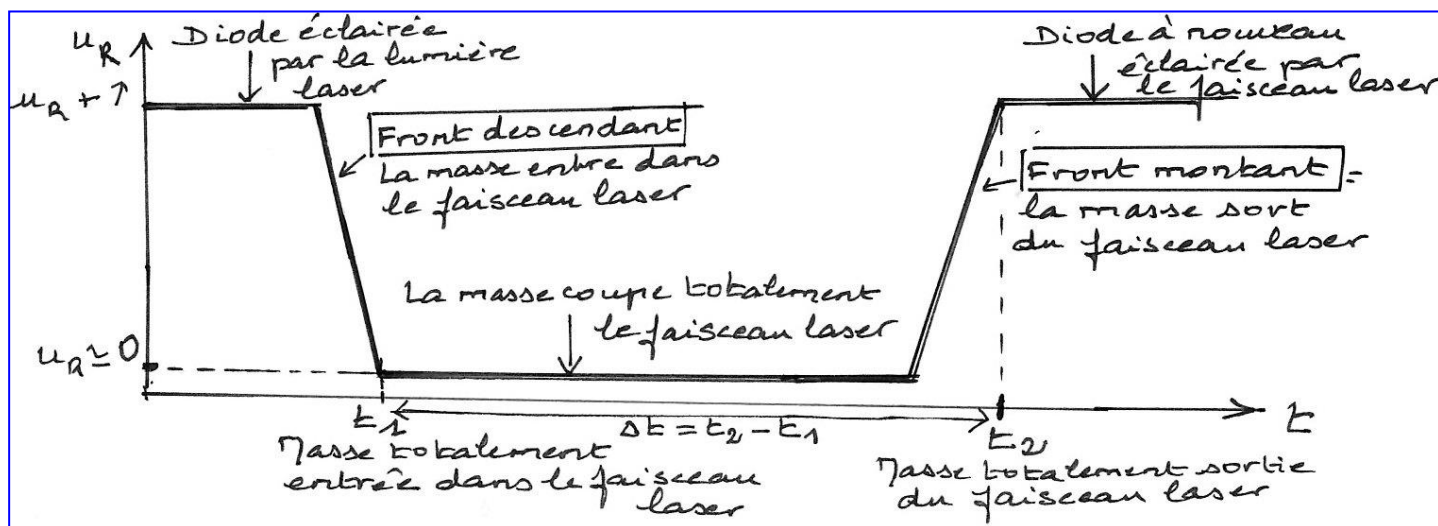 uR
Diode éclairée
par la lumière
laser
uR + ↑
Front descendant
La masse entre dans
le faisceau laser
Diode à nouveau
éclairée par
le faisceau laser
Front montant =
la masse sort
du faisceau laser
La masse coupe totalement
le faisceau laser
uR ≃ 0
t1
Δt = t2 - t1
t2
t
Masse totalement
entrée dans le faisceau
laser
Masse totalement sortie
du faisceau laser